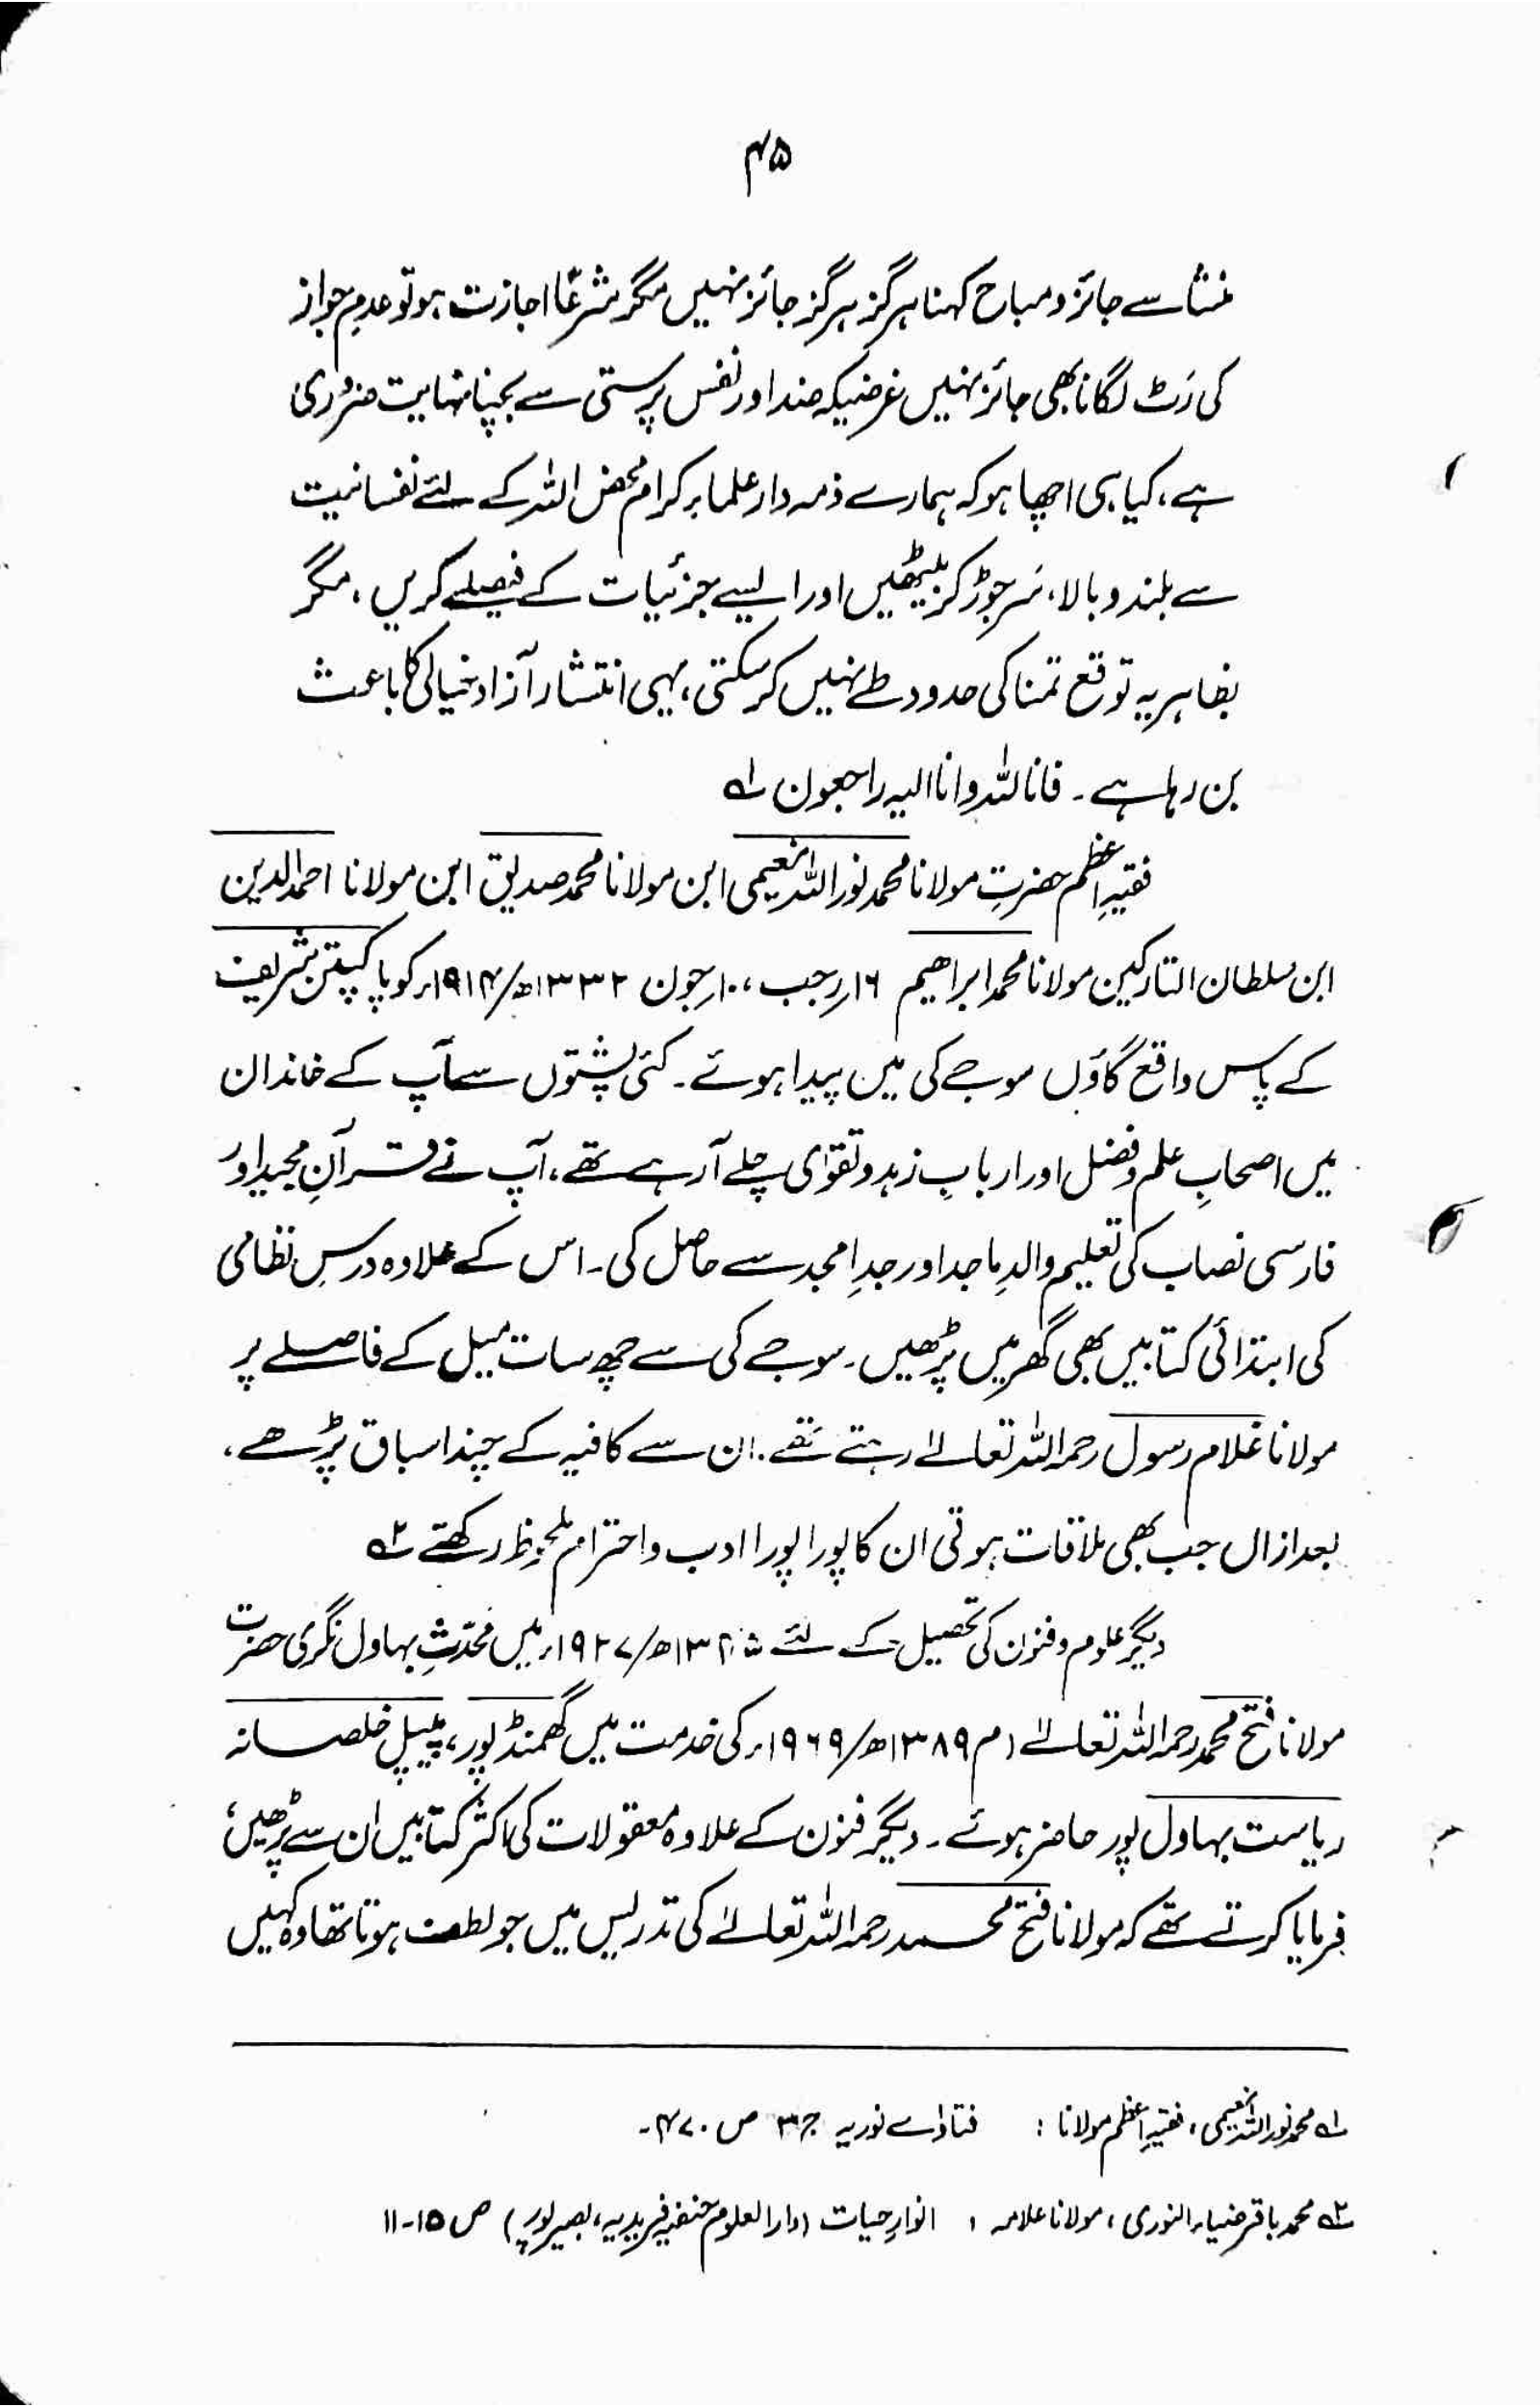 ۴۵
منشا سے جائز و مباح کہنا ہرگز ہرگز جائز نہیں مگر شرعًا اجازت ہو تو عدمِ جواز
کی رَٹ لگانا بھی جائز نہیں غرضیکہ ضد اور نفس پرستی سے بچنا نہایت ضروری
ہے، کیا ہی اچھا ہو کہ ہمارے ذمہ دار علماء کرام محض اللہ کے لئے نفسانیت
سے بلند و بالا، سَر جوڑ کر بیٹھیں اور ایسے جزئیات کے فیصلے کریں، مگر
بظاہر یہ توقع تمنا کی حدود طے نہیں کر سکتی، یہی انتشار آزاد خیالی کا باعث
بن رہا ہے ۔ فانا للہ وانا الیہ راجعون ؎۱
فقیہِ اعظم حضرتِ مولانا محمد نور اللہ نعیمی ابن مولانا محمد صدیق ابن مولانا احمد الدین
ابن سلطان التارکین مولانا محمد ابراھیم ۱۶ رجب، ۱۰ جون ۱۳۳۲ھ/۱۹۱۴ء کو پاکپتن شریف
کے پاس واقع گاؤں سوجے کی میں پیدا ہوئے ۔ کئی پشتوں سے آپ کے خاندان
میں اصحابِ علم و فضل اور اربابِ زہد و تقوٰی چلے آرہے تھے، آپ نے قرآنِ مجید اور
فارسی نصاب کی تعلیم والدِ ماجد اور جدِ امجد سے حاصل کی ۔ اس کے علاوہ درسِ نظامی
کی ابتدائی کتابیں بھی گھر میں پڑھیں ۔ سوجے کی سے چھ سات میل کے فاصلے پر
مولانا غلام رسول رحمہ اللہ تعالےٰ رہتے تھے ۔ ان سے کافیہ کے چند اسباق پڑھے،
بعد ازاں جب بھی ملاقات ہوتی ان کا پورا پورا ادب و احترام ملحوظ رکھتے ؎۲
دیگر علوم و فنون کی تحصیل کے لئے ۱۳۴۵ھ/۱۹۲۷ء میں محدّثِ بہاول نگری حضرت
مولانا فتح محمد رحمہ اللہ تعالےٰ (م ۱۳۸۹ھ/۱۹۶۹ء کی خدمت میں گھمنڈ پور، پیپل خلصانہ
ریاست بہاول پور حاضر ہوئے ۔ دیگر فنون کے علاوہ معقولات کی اکثر کتابیں ان سے پڑھیں،
فرمایا کرتے تھے کہ مولانا فتح محمد رحمہ اللہ تعالےٰ کی تدریس میں جو لطف ہوتا تھا وہ کہیں
؎۱ محمد نور اللہ نعیمی، فقیہِ اعظم مولانا : فتاوٰے نوریہ ج۳ ص ۴۷۰۔
؎۲ محمد باقر ضیاء النوری، مولانا علامہ : انوارِ حیات (دار العلوم حنفیہ فریدیہ، بصیر پور) ص ۱۵-۱۱